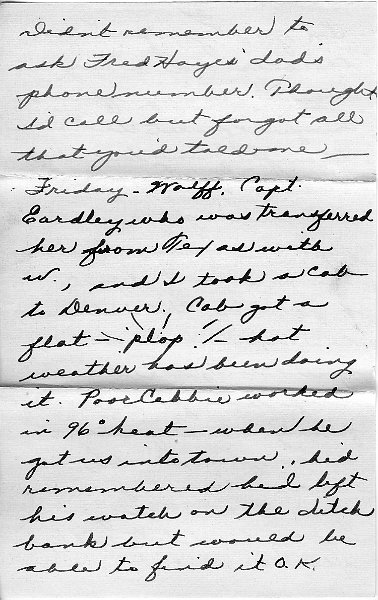 Didn't remember to
ask Fred Hayes' dad's
phone number. Thought
I'd call but forgot all
that you'd told me —
Friday - Wolff, Capt.
Eardley who was transferred
her from Texas with
W., and I took a cab
to Denver. Cab got a
flat - "plop"! - hot
weather has been doing
it. Poor Cabbie worked
in 96° heat - when he
got us into town, he'd
remembered he'd left
his watch on the ditch
bank but would be
able to find it O.K.